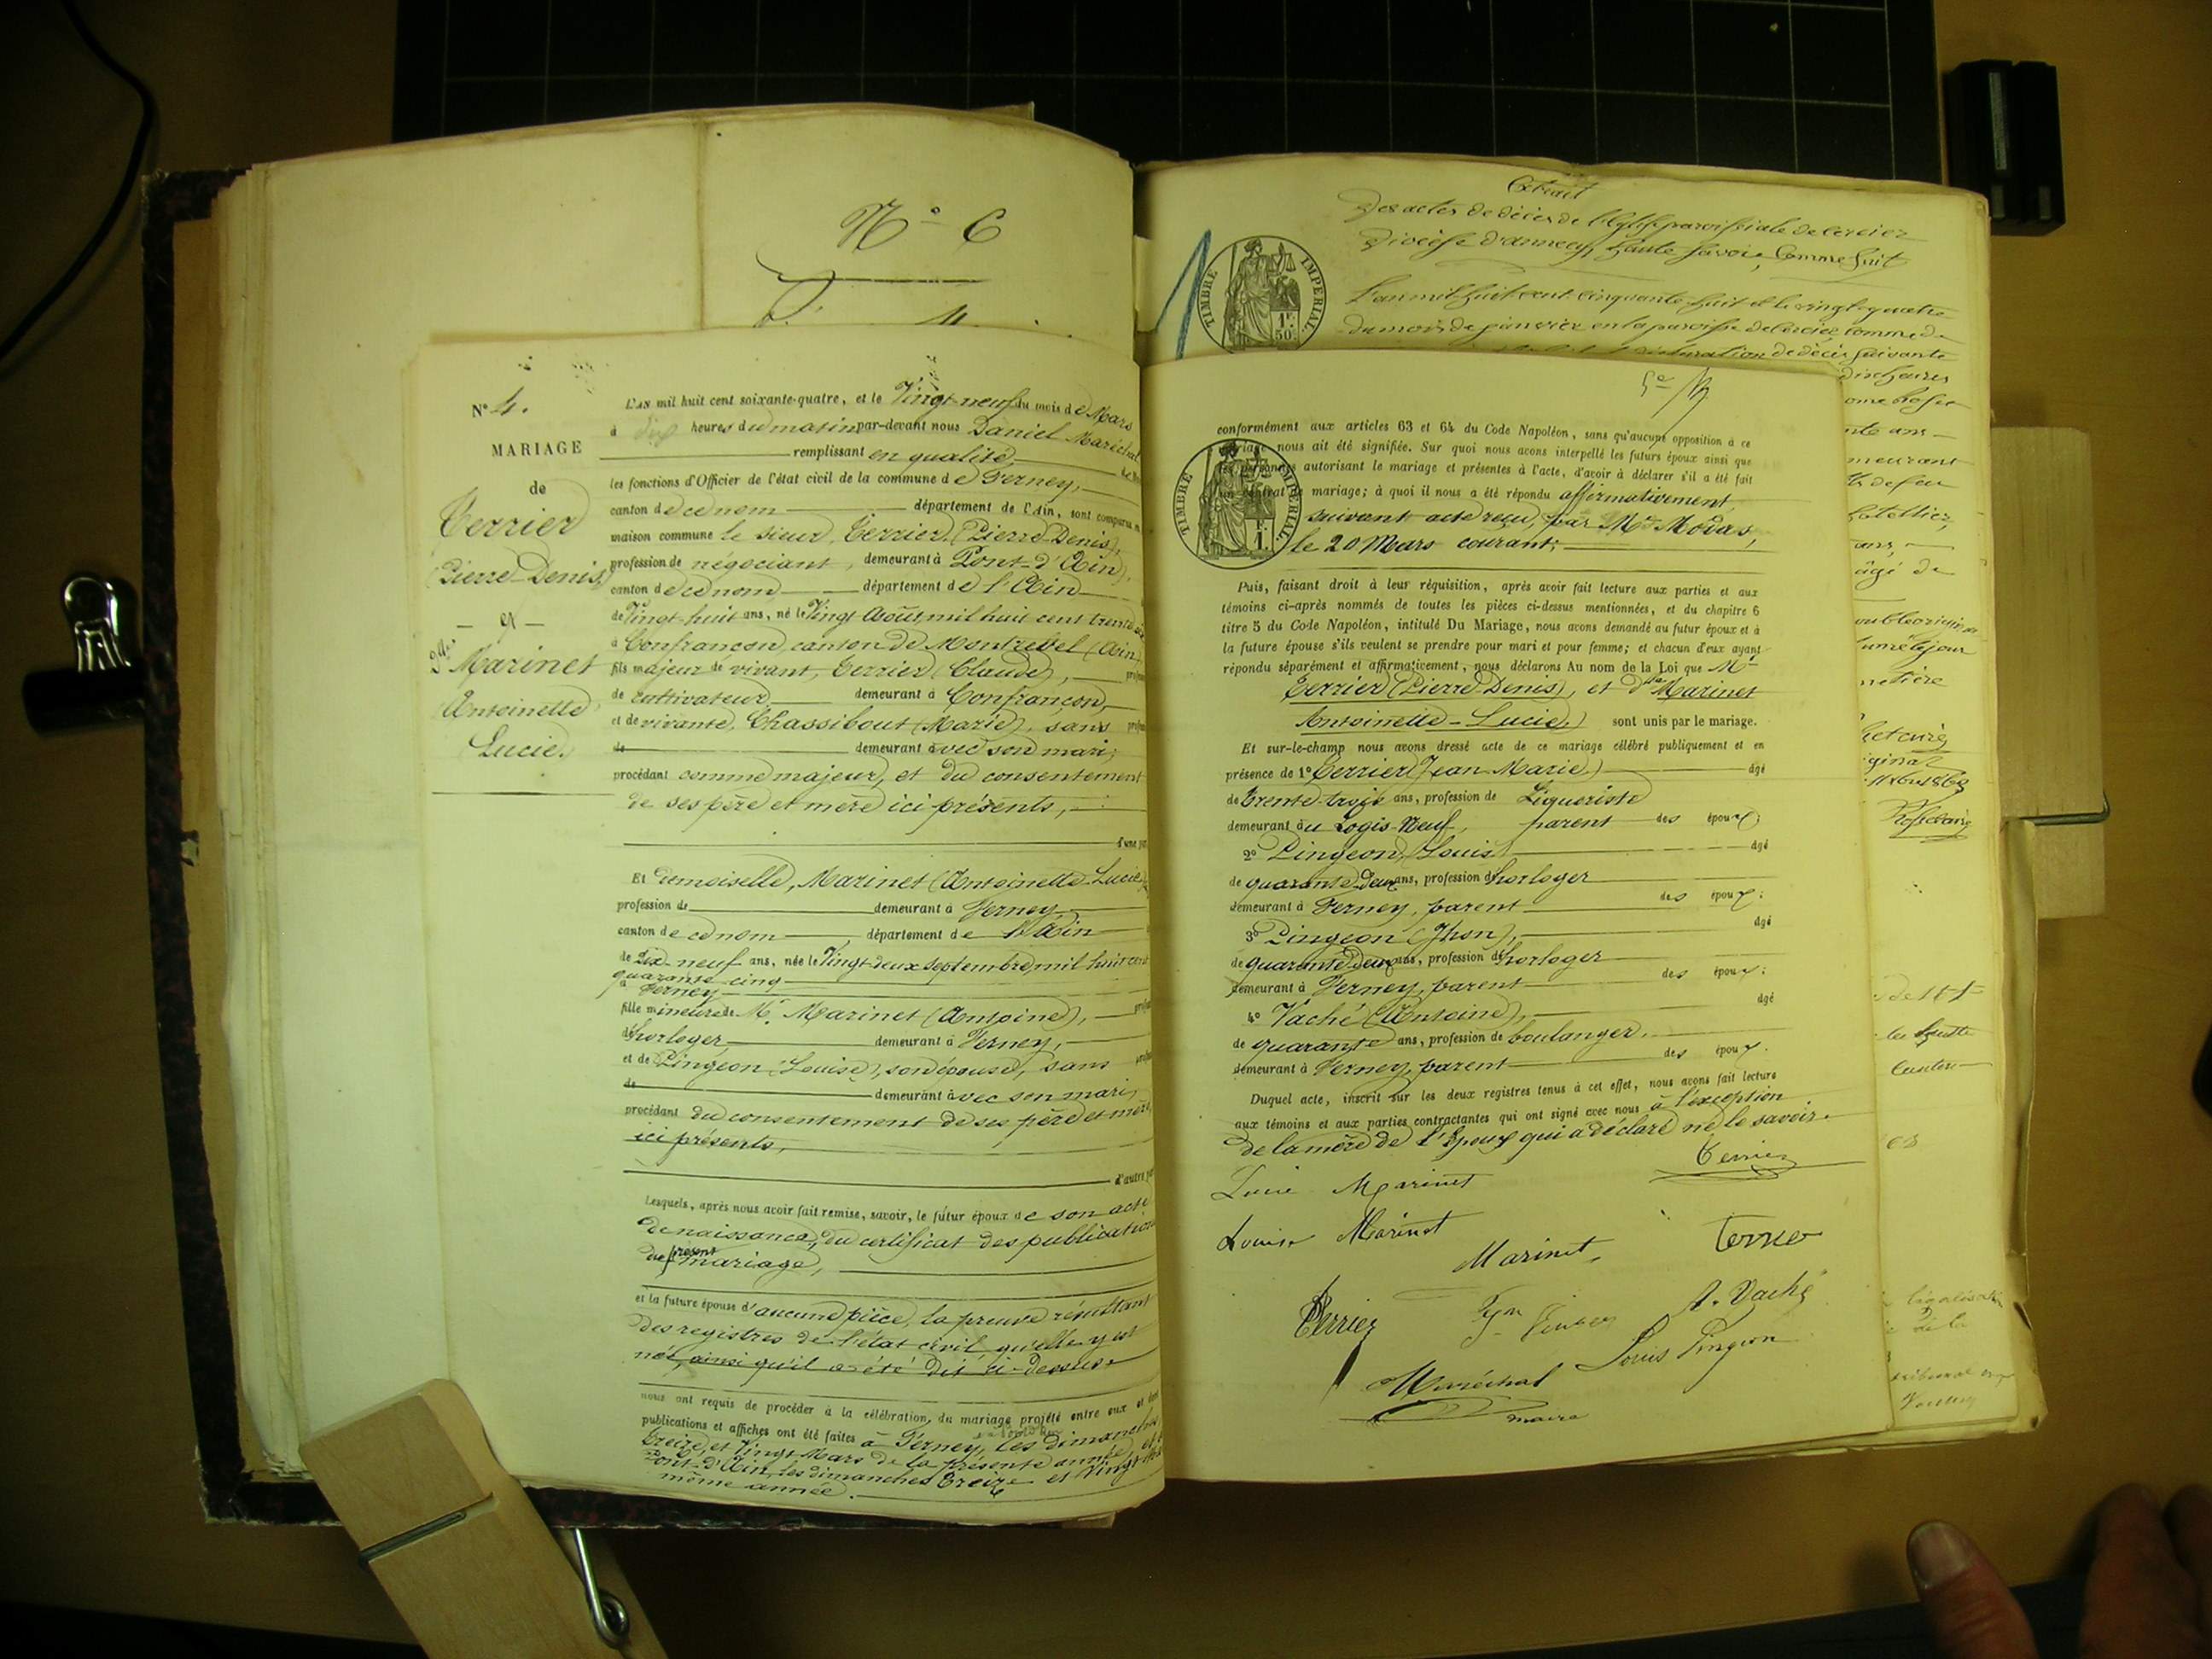 N° 6
N° 4.
MARIAGE
de
Terrier
(Pierre-Denis)
— et —
Dlle Marinet
Antoinette
Lucie.
L'AN mil huit cent soixante-quatre, et le Vingt-neuf du mois de Mars
à dix heures du matin par-devant nous Daniel Maréchal
remplissant en qualité
les fonctions d'Officier de l'état civil de la commune de Ferney,
canton de ce nom département de l'Ain, sont comparu
maison commune le sieur, Terrier, (Pierre-Denis),
profession de négociant, demeurant à Pont-d'Ain,
canton de ce nom département de l'Ain
de Vingt-huit ans, né le Vingt Août, mil huit cent trente
à Confrançon canton de Montrevel (Ain)
fils majeur de vivant, Terrier (Claude),
de cultivateur demeurant à Confrançon,
et de vivante, Chassibout (Marie), sans
de demeurant avec son mari;
procédant comme majeur, et du consentement
de ses père et mère ici présents,
d'une
Et demoiselle, Marinet (Antoinette-Lucie)
profession de demeurant à Ferney
canton de ce nom département de l'Ain
de dix-neuf ans, née le Vingt-deux septembre, mil huit cent
quarante cinq
à Ferney
fille mineure de Mr. Marinet (Antoine),
d'horloger demeurant à Ferney,
et de Pingeon (Louise), son épouse, sans
de demeurant avec son mari,
procédant du consentement de ses père et mère,
ici présents,
d'autre
Lesquels, après nous avoir fait remise, savoir, le futur époux de son acte
de naissance, du certificat des publications
du présent mariage,
et la future épouse d'aucune pièce, la preuve résultant
des registres de l'état civil, qu'elle y est
née, ainsi qu'il a été dit ci-dessus.
nous ont requis de procéder à la célébration du mariage projeté entre eux et
publications et affiches ont été faites à Ferney, les dimanches
treize et Vingt Mars de la présente année, et à
Pont-d'Ain, les dimanches treize et Vingt
même année.
Extrait
Des actes de décès de l'Eglise paroissiale de Cercier
Diocèse d'annecy, haute Savoie, Comme suit
L'an mil huit cent cinquante huit et le vingt-quatre
du mois de janvier en la paroisse de Cercier, commune de
déclaration de décès suivante
TIMBRE IMPERIAL
1F.
50.
conformément aux articles 63 et 64 du Code Napoléon, sans qu'aucune opposition à ce
mariage nous ait été signifiée. Sur quoi nous avons interpellé les futurs époux ainsi que
les personnes autorisant le mariage et présentes à l'acte, d'avoir à déclarer s'il a été fait
un contrat de mariage; à quoi il nous a été répondu affirmativement,
suivant acte reçu, par Me Modas,
le 20 Mars courant;
TIMBRE IMPERIAL
1F.
Puis, faisant droit à leur réquisition, après avoir fait lecture aux parties et aux
témoins ci-après nommés de toutes les pièces ci-dessus mentionnées, et du chapitre 6
titre 5 du Code Napoléon, intitulé Du Mariage, nous avons demandé au futur époux et à
la future épouse s'ils veulent se prendre pour mari et pour femme; et chacun d'eux ayant
répondu séparément et affirmativement, nous déclarons Au nom de la Loi que Mr
Terrier (Pierre-Denis), et dlle Marinet
Antoinette-Lucie) sont unis par le mariage.
Et sur-le-champ nous avons dressé acte de ce mariage célébré publiquement et en
présence de 1° Terrier (Jean-Marie) âgé
de trente-trois ans, profession de Liquoriste
demeurant au Logis-Neuf, parent des époux;
2° Pingeon, (Louis) âgé
de quarante-deux ans, profession d'horloger
demeurant à Ferney, parent des époux;
3° Pingeon (Jhon), âgé
de quarante-deux ans, profession d'horloger
demeurant à Ferney, parent des époux;
4° Vaché (Antoine), âgé
de quarante ans, profession de boulanger.
demeurant à Ferney, parent des époux.
Duquel acte, inscrit sur les deux registres tenus à cet effet, nous avons fait lecture
aux témoins et aux parties contractantes qui ont signé avec nous à l'exception
de la mère de l'Epoux qui a déclaré ne le savoir.
Terrier
Lucie Marinet
Louise Marinet
Marinet
Terrier
A. Vaché
Louis Pingeon
Maréchal
maire